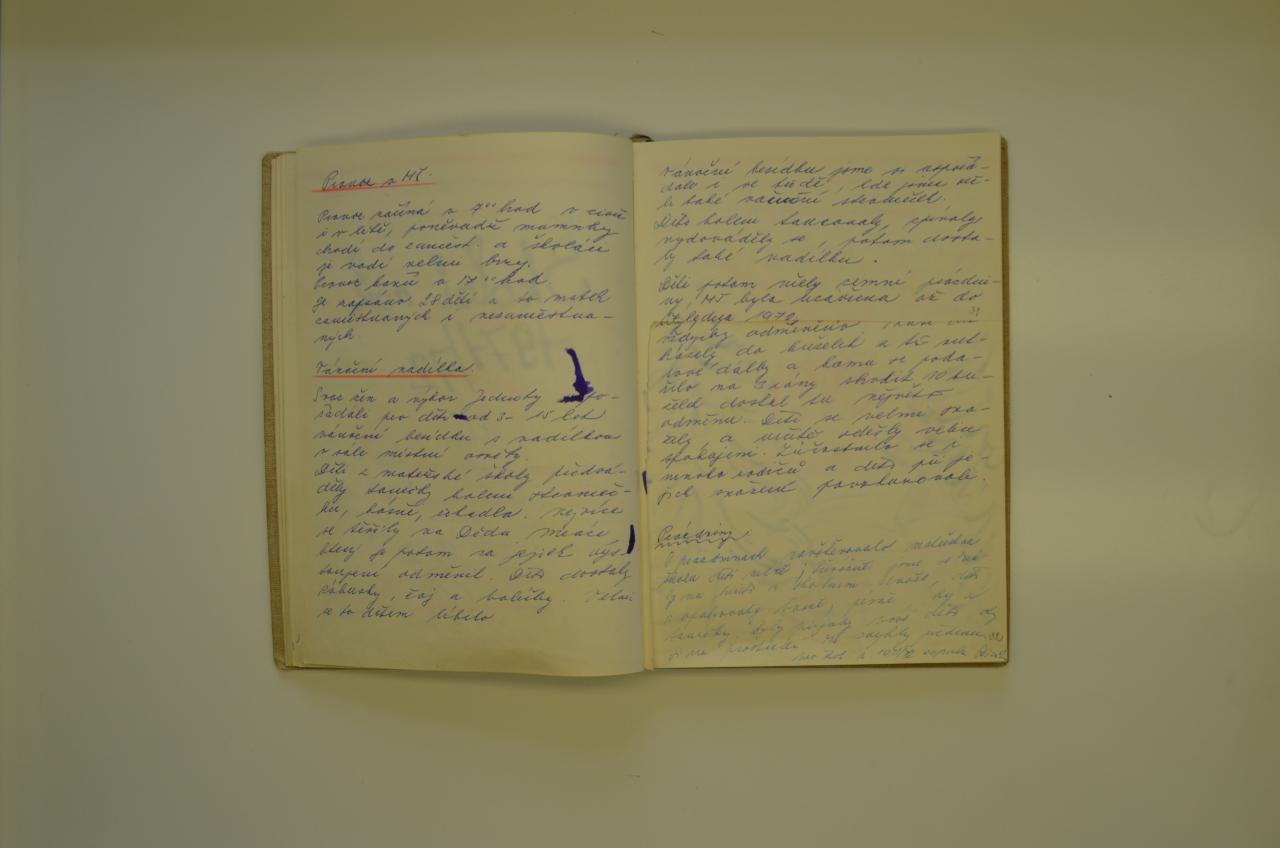 Provoz v MŠ.
Provoz začíná v 7°° hod v zimě
i v létě, poněvadž maminky
chodí do zaměst. a školáci
je vodí velmi brzy.
Provoz končí v 17°° hod
Je zapsáno 28 dětí a to matek
zaměstnaných i nezaměstna-
ných.
Vánoční nadílka.
Svaz žen a výbor Jednoty
řádali pro děti od 3- 15 let
vánoční besídku s nadílkou
v sále místní osvěty.
Děti z mateřské školy předvá-
děly tanečky kolem stromeč-
ku, básně, říkadla. Nejvíce
se těšily na Dědu Mráze
který je potom za jejich vys-
toupení odměnil. Děti dostaly
zákusky, čaj a balíčky. Velmi
se to dětem líbilo
Vánoční besídku jsme si uspořá-
dali i ve třídě, kde jsme mě-
li také vánoční stromeček.
Děti kolem tancovaly, zpívaly
vydováděly se, potom dosta-
ly také nadílku.
Děti potom měly zimní prázdni-
ny, MŠ byla uzavřena až do
ledna 1972
31
vždycky odměněno
házely do kuželek a tří met-
rové dálky a komu se poda-
řilo na 3 rány shodit 10 ku-
želek dostal tu největší
odměnu. Děti se velmi
a určitě odešly velmi
spokojeni. Zúčastnilo se i
mnoho rodičů a děti při je-
jich snažení povzbuzovali.
Prázdniny
O prázdninách navštěvovalo mateřskou
školu dětí méně,
a opakovaly básně, písně
tanečky.
32